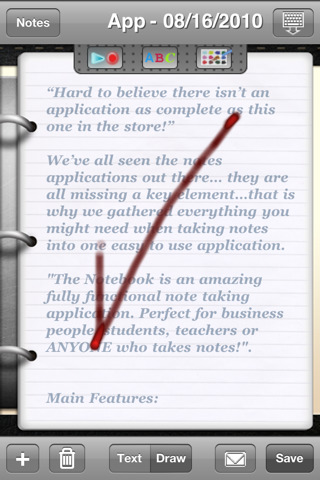 Notes
App - 08/16/2010
ABC
“Hard to believe there isn’t an
application as complete as this
one in the store!”
We’ve all seen the notes
applications out there... they are
all missing a key element...that is
why we gathered everything you
might need when taking notes
into one easy to use application.
"The Notebook is an amazing
fully functional note taking
application. Perfect for business
people, students, teachers or
ANYONE who takes notes!".
Main Features:
Text
Draw
Save